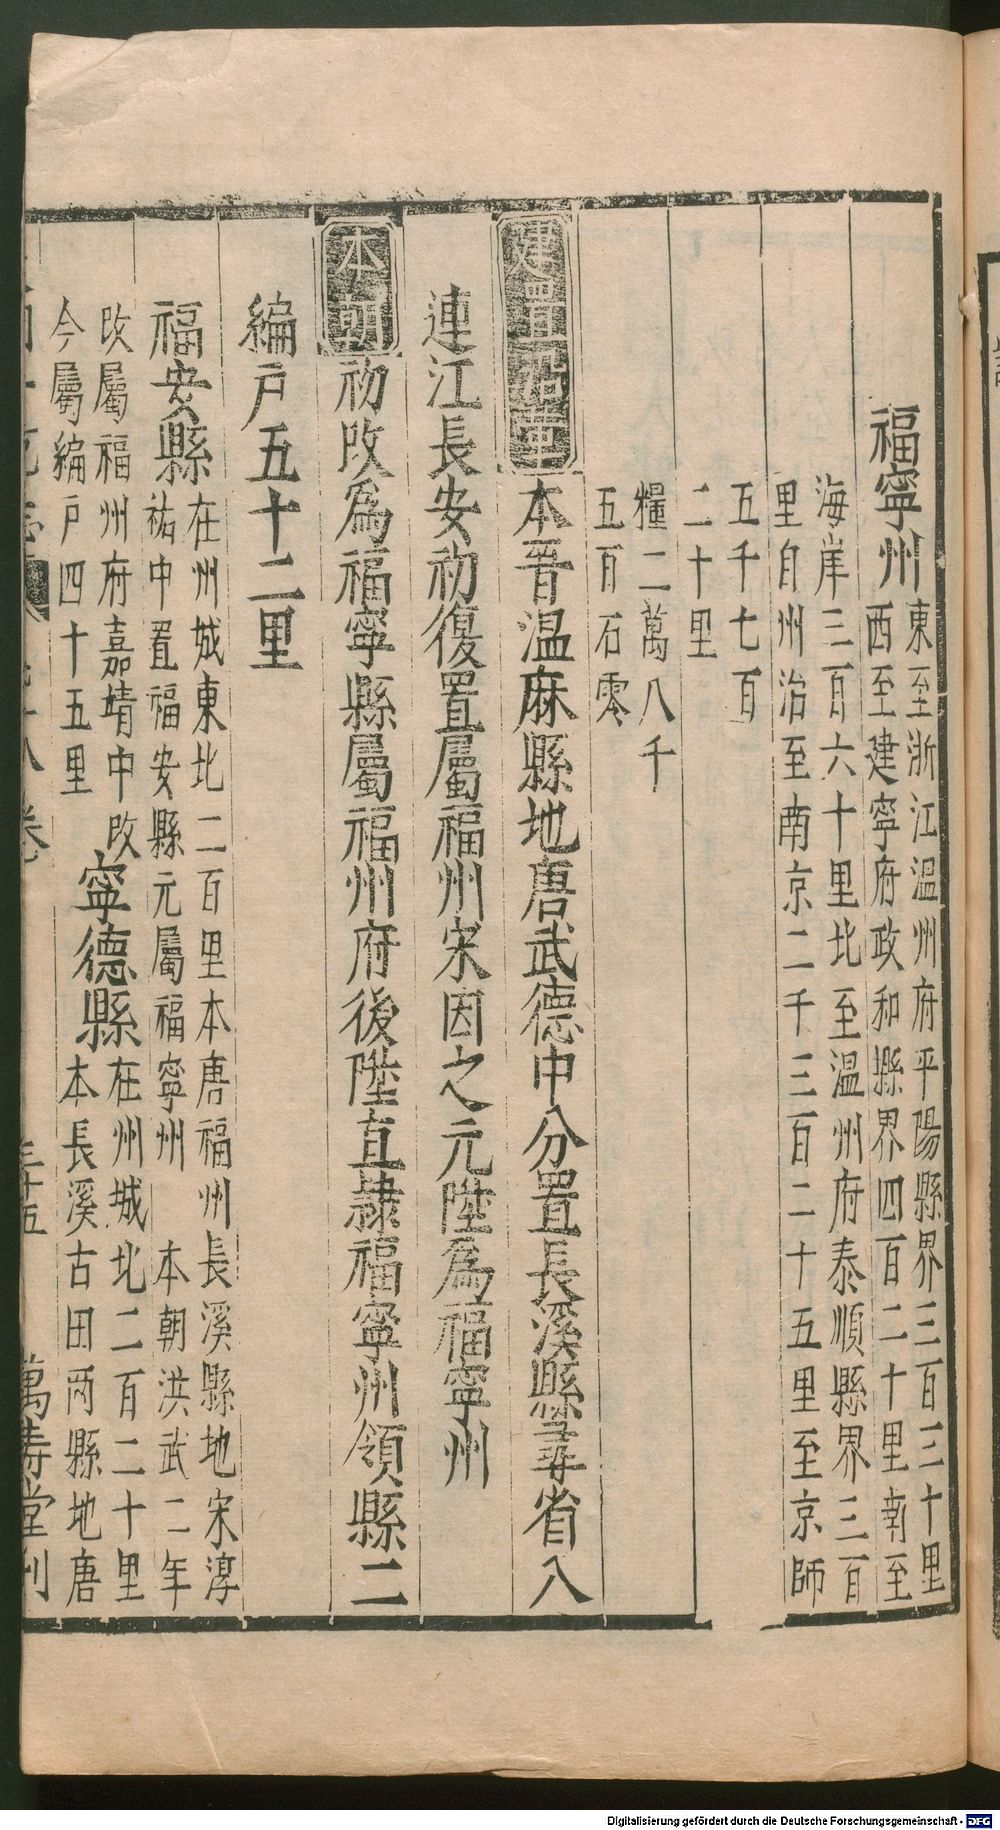 福寧州
東至浙江温州府平陽縣界三百三十里
西至建寧府政和縣界四百二十里南至
海岸三百六十里北至温州府泰順縣界三百
里自州治至南京二千三百二十五里至京師
五千七百
二十里
糧二萬八千
五百石零
建置沿革 本晉温麻縣地唐武德中分置長溪縣尋省入
連江長安初復置屬福州宋因之元陞爲福寧州
本朝 初改爲福寧縣屬福州府後陞直隸福寧州領縣二
編戶五十二里
福安縣
在州城東北二百里本唐福州長溪縣地宋淳
祐中置福安縣元屬福寧州 本朝洪武二年
改屬福州府嘉靖中改
今屬編戶四十五里
寧德縣
在州城北二百二十里
本長溪古田两縣地唐
卷 三十五 萬壽堂刊